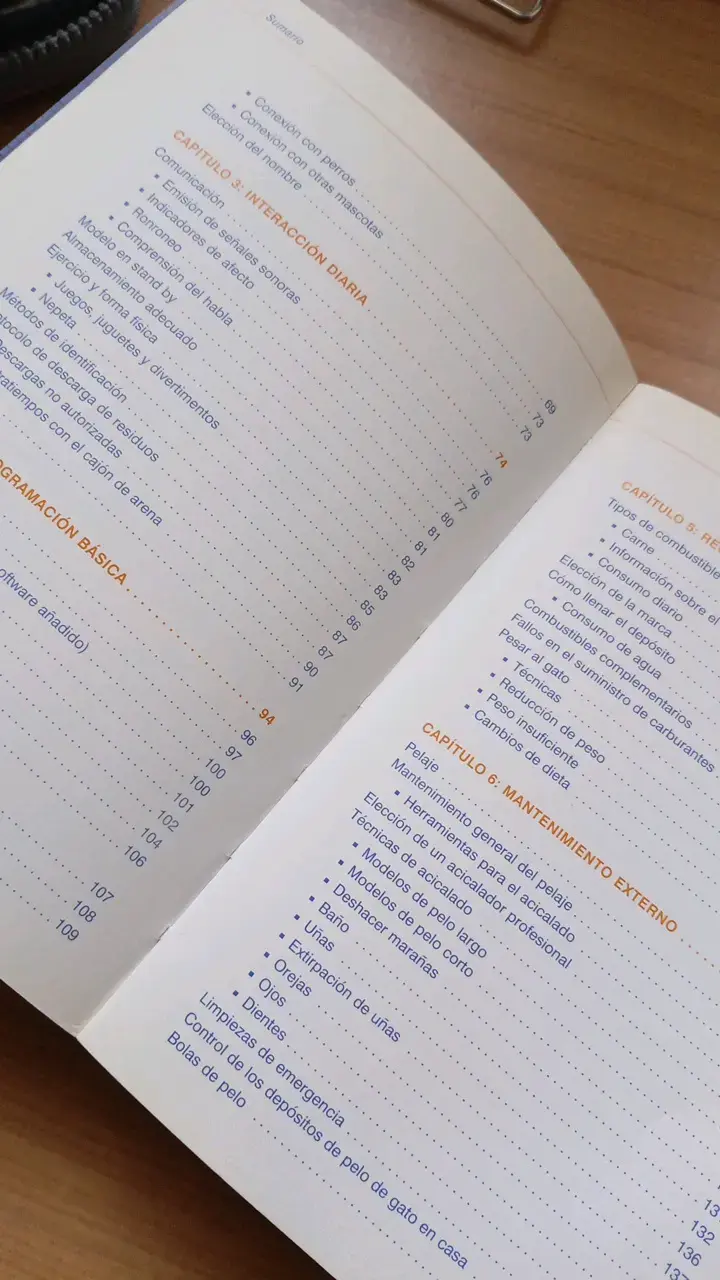 Sumario
▪ Conexión con perros . . . 69
▪ Conexión con otras mascotas . . . 73
Elección del nombre . . . 73
CAPITULO 3: INTERACCIÓN DIARIA . . . 74
Comunicación . . . 76
▪ Emisión de señales sonoras . . . 76
▪ Indicadores de afecto . . . 77
▪ Ronroneo . . . 80
▪ Comprensión del habla . . . 81
Modelo en stand by . . . 81
Almacenamiento adecuado . . . 82
Ejercicio y forma física . . . 83
▪ Juegos, juguetes y divertimentos . . . 85
▪ Nepeta . . . 86
Métodos de identificación . . . 87
otocolo de descarga de residuos . . . 87
escargas no autorizadas . . . 90
ratiempos con el cajón de arena . . . 91
OGRAMACIÓN BÁSICA . . . 94
96
97
oftware añadido) . . . 100
100
101
102
104
106
107
108
109
CAPÍTULO 5: RE
Tipos de combustible
▪ Carne
▪ Información sobre el
▪ Consumo diario
Elección de la marca
Cómo llenar el depósito
▪ Consumo de agua
Combustibles complementarios
Fallos en el suministro de carburantes
Pesar al gato
▪ Técnicas
▪ Reducción de peso
▪ Peso insuficiente
▪ Cambios de dieta
CAPÍTULO 6: MANTENIMIENTO EXTERNO
Pelaje
Mantenimiento general del pelaje
▪ Herramientas para el acicalado
Elección de un acicalador profesional
Técnicas de acicalado
▪ Modelos de pelo largo
▪ Modelos de pelo corto
▪ Deshacer marañas
▪ Baño
▪ Uñas
▪ Extirpación de uñas
▪ Orejas
▪ Ojos
▪ Dientes
Limpiezas de emergencia
Control de los depósitos de pelo de gato en casa
Bolas de pelo
13
132
136
137